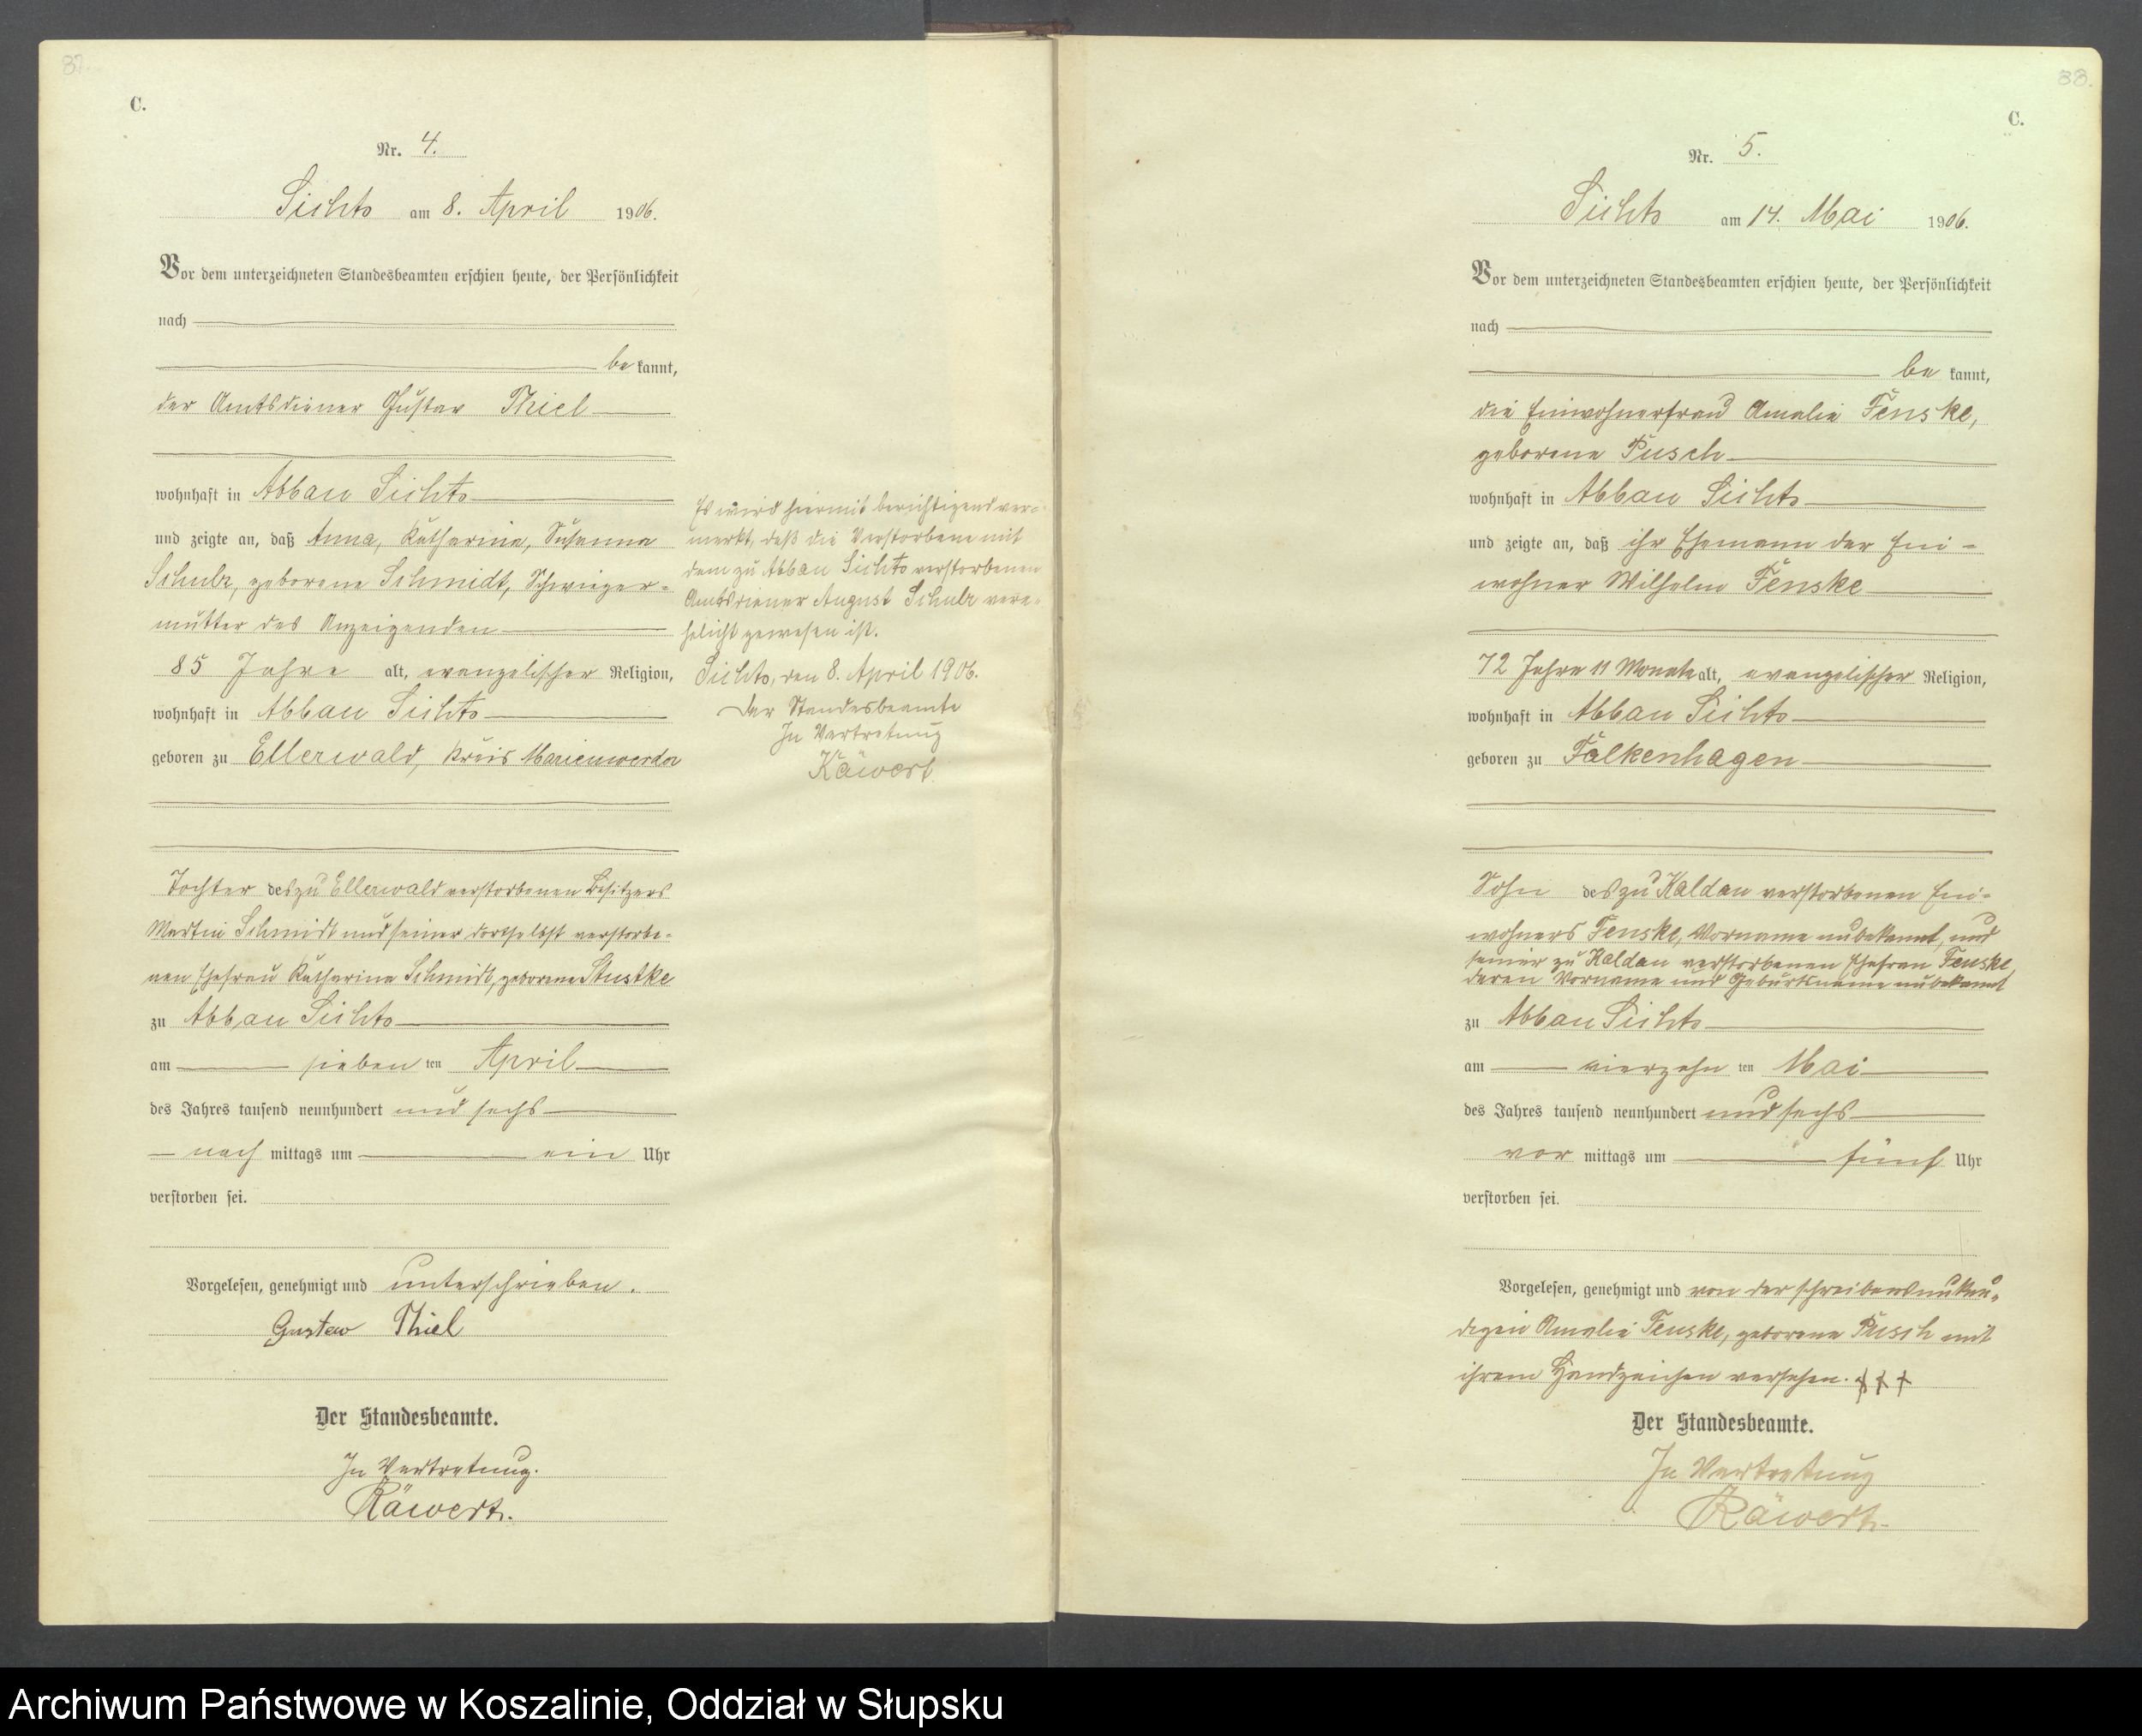 C.
Nr. 4.
Sichts am 8. April 1906.
Vor dem unterzeichneten Standesbeamten erschien heute, der Persönlichkeit
nach
be kannt,
der Amtsdiener Gustav Thiel
wohnhaft in Abbau Sichts
und zeigte an, daß Anna, Katharina, Susanna
Schulz, geborene Schmidt, Schwieger-
mutter des Anzeigenden
85 Jahre alt, evangelischer Religion,
wohnhaft in Abbau Sichts
geboren zu Ellerwald, Kreis Marienwerder
Tochter des zu Ellerwald verstorbenen Besitzers
Martin Schmidt und seiner dortselbst verstorbe-
nen Ehefrau Katharina Schmidt, geborene Stustke
zu Abbau Sichts
am sieben ten April
des Jahres tausend neunhundert und sechs
nach mittags um ein Uhr
verstorben sei.
Vorgelesen, genehmigt und unterschrieben.
Gustav Thiel
Der Standesbeamte.
In Vertretung.
Käwert.
Es wird hiermit berichtigend ver-
merkt, daß die Verstorbene mit
dem zu Abbau Sichts verstorbenen
Amtsdiener August Schulz vere-
helicht gewesen ist.
Sichts, den 8. April 1906.
Der Standesbeamte
In Vertretung
Käwert.
33.
C.
Nr. 5.
Sichts am 14. Mai 1906.
Vor dem unterzeichneten Standesbeamten erschien heute, der Persönlichkeit
nach
be kannt,
die Einwohnerfrau Amalie Fenske,
geborene Pusch
wohnhaft in Abbau Sichts
und zeigte an, daß ihr Ehemann der Ein-
wohner Wilhelm Fenske
72 Jahre 11 Monate alt, evangelischer Religion,
wohnhaft in Abbau Sichts
geboren zu Falkenhagen
Sohn des zu Kaldau verstorbenen Ein-
wohners Fenske, Vorname unbekannt, und
seiner zu Kaldau verstorbenen Ehefrau Fenske,
deren Vorname und Geburtsname unbekannt
zu Abbau Sichts
am vierzehn ten Mai
des Jahres tausend neunhundert und sechs
vor mittags um fünf Uhr
verstorben sei.
Vorgelesen, genehmigt und von der schreibensunkun-
digen Amalie Fenske, geborene Pusch mit
ihrem Handzeichen versehen. + + +
Der Standesbeamte.
In Vertretung
Käwert.
Archiwum Państwowe w Koszalinie, Oddział w Słupsku